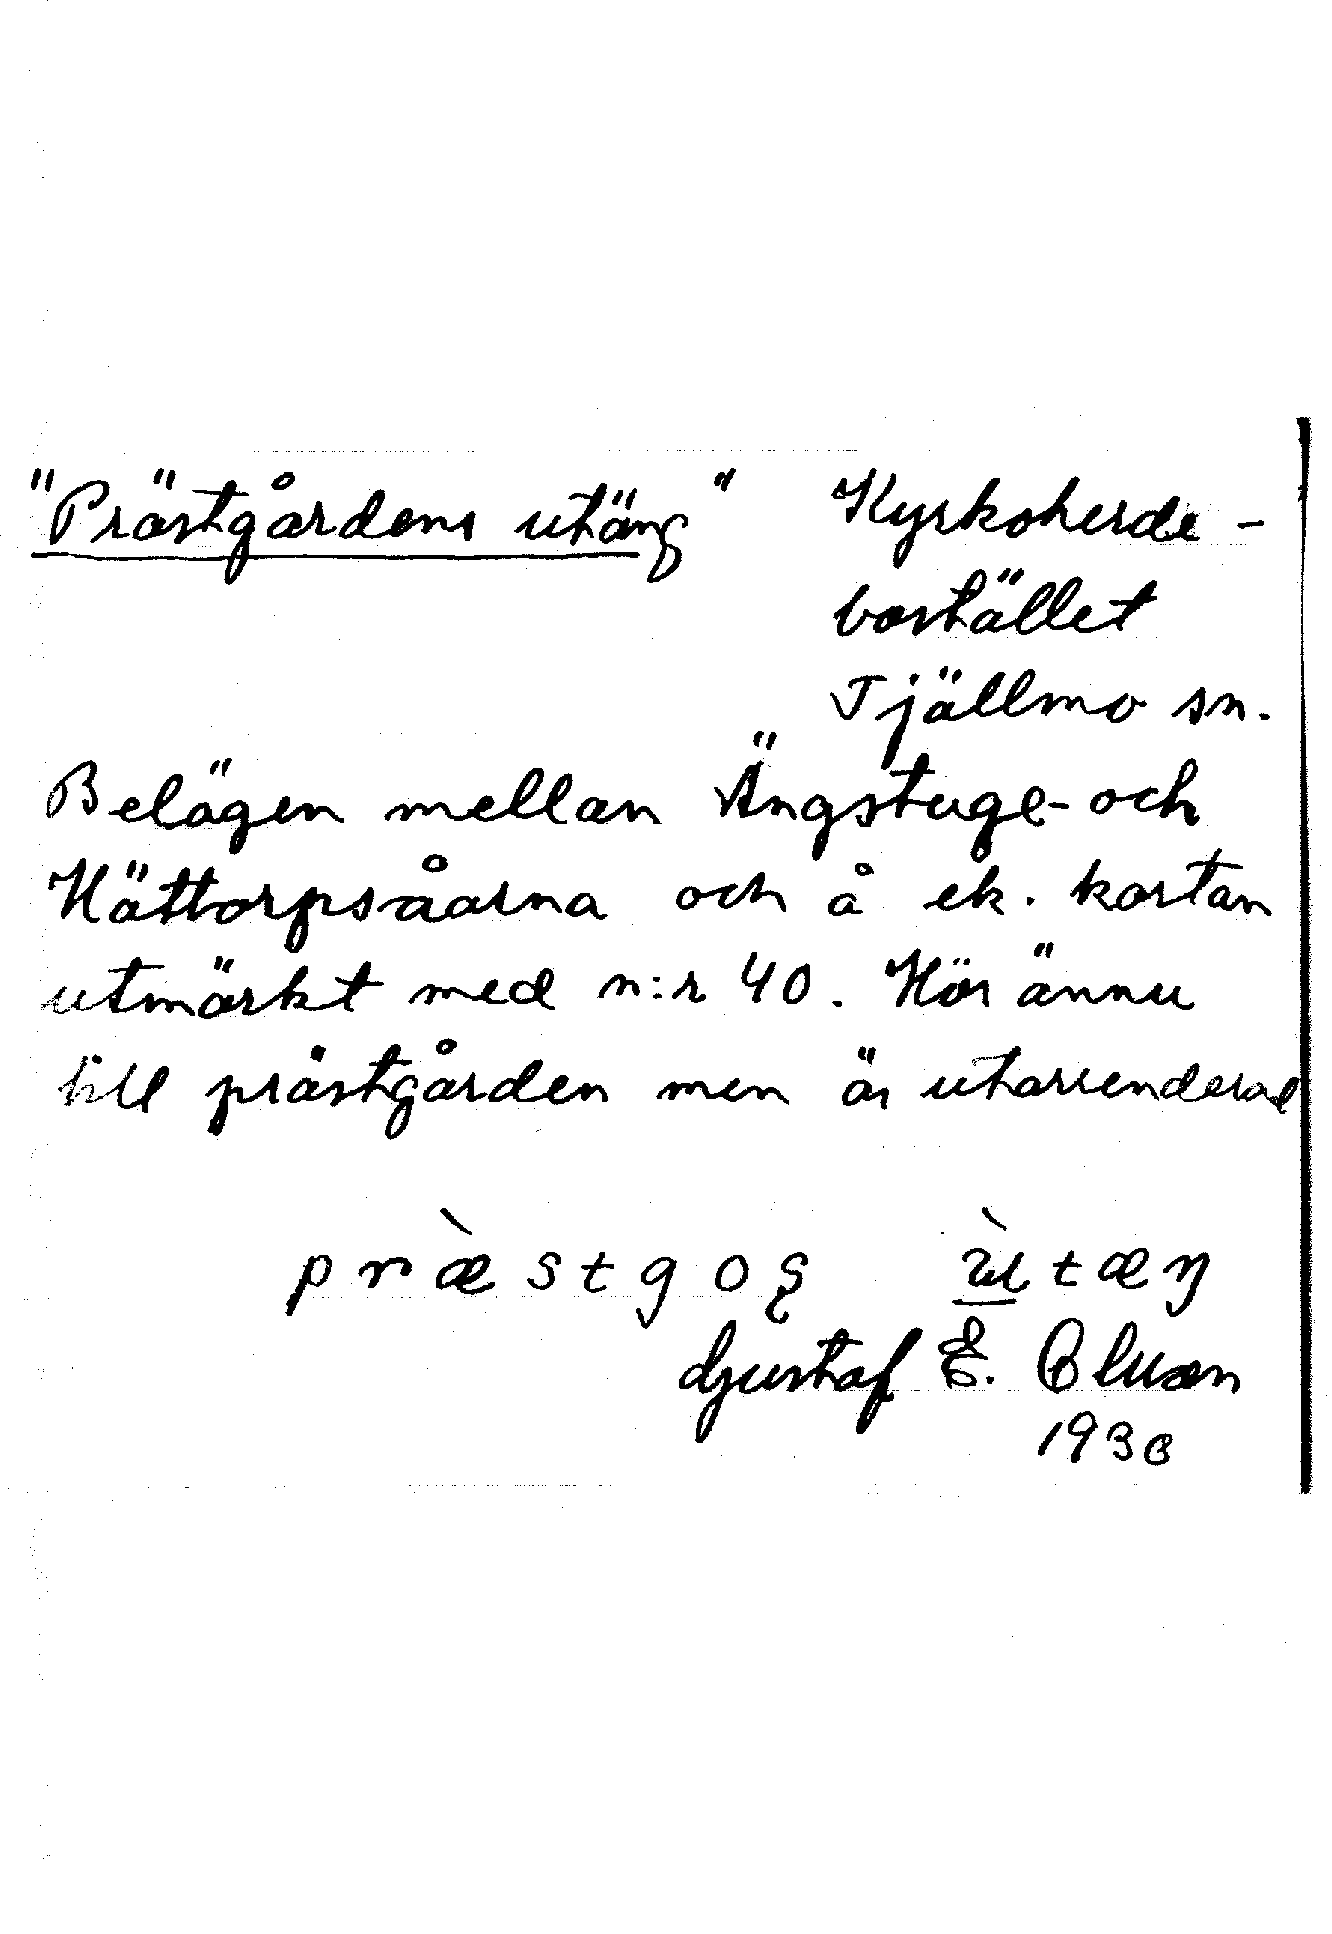 "Prästgårdens utäng" Kyrkoherde-
bostället
Tjällmo sn.
Belägen mellan Ängstuge- och
Hättorpsåarna och å ek. kartan
utmärkt med n:r 40. Hör ännu
till prästgården men är utarrenderad
præ̀stgoş ùtæŋ
Gustaf E.